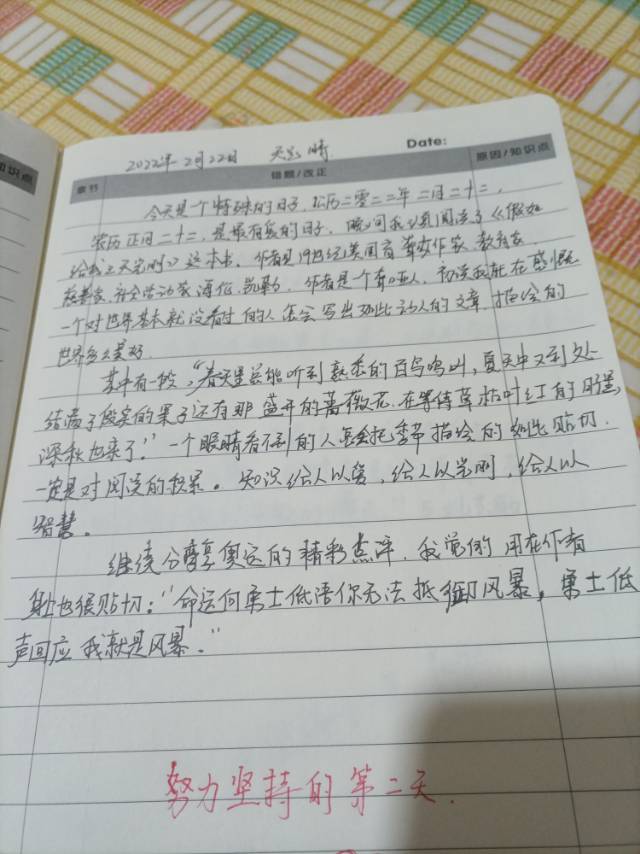 知识点
Date:
章节
错题/改正
原因/知识点
2022年2月22日 天气 晴
今天是个特殊的日子,公历二零二二年二月二十二,
农历正月二十二,是最有爱的日子。晚间我认真阅读了《假如
给我三天光明》这本书。作者是19世纪美国盲聋女作家、教育家、
慈善家、社会活动家海伦·凯勒。作者是个聋哑人,初读我就在感慨
一个对世界基本就没看过的人怎会写出如此动人的文章,描绘的
世界多么美好。
其中有一段,“春天里总能听到熟悉的百鸟鸣叫,夏天中又到处
结满了殷实的果子还有那盛开的蔷薇花,在等待草枯叶红的
深秋也来了!”一个眼睛看不到的人怎会把季节描绘的如此贴切,
一定是对阅读的积累。知识给人以爱,给人以光明,给人以
智慧。
继续分享奥运的精彩点评,我觉的用在作者
身上也很贴切:“命运向勇士低语你无法抵御风暴,勇士低
声回应我就是风暴。”
努力坚持的第二天.